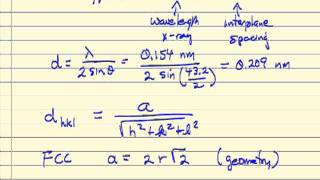 wavelength interplane
x-ray spacing
d = λ / 2 sin θ = 0.154 nm / 2 sin (43.2/2) = 0.209 nm
d hkl = a / √h² + k² + l²
FCC a = 2 r √2 (geometry)